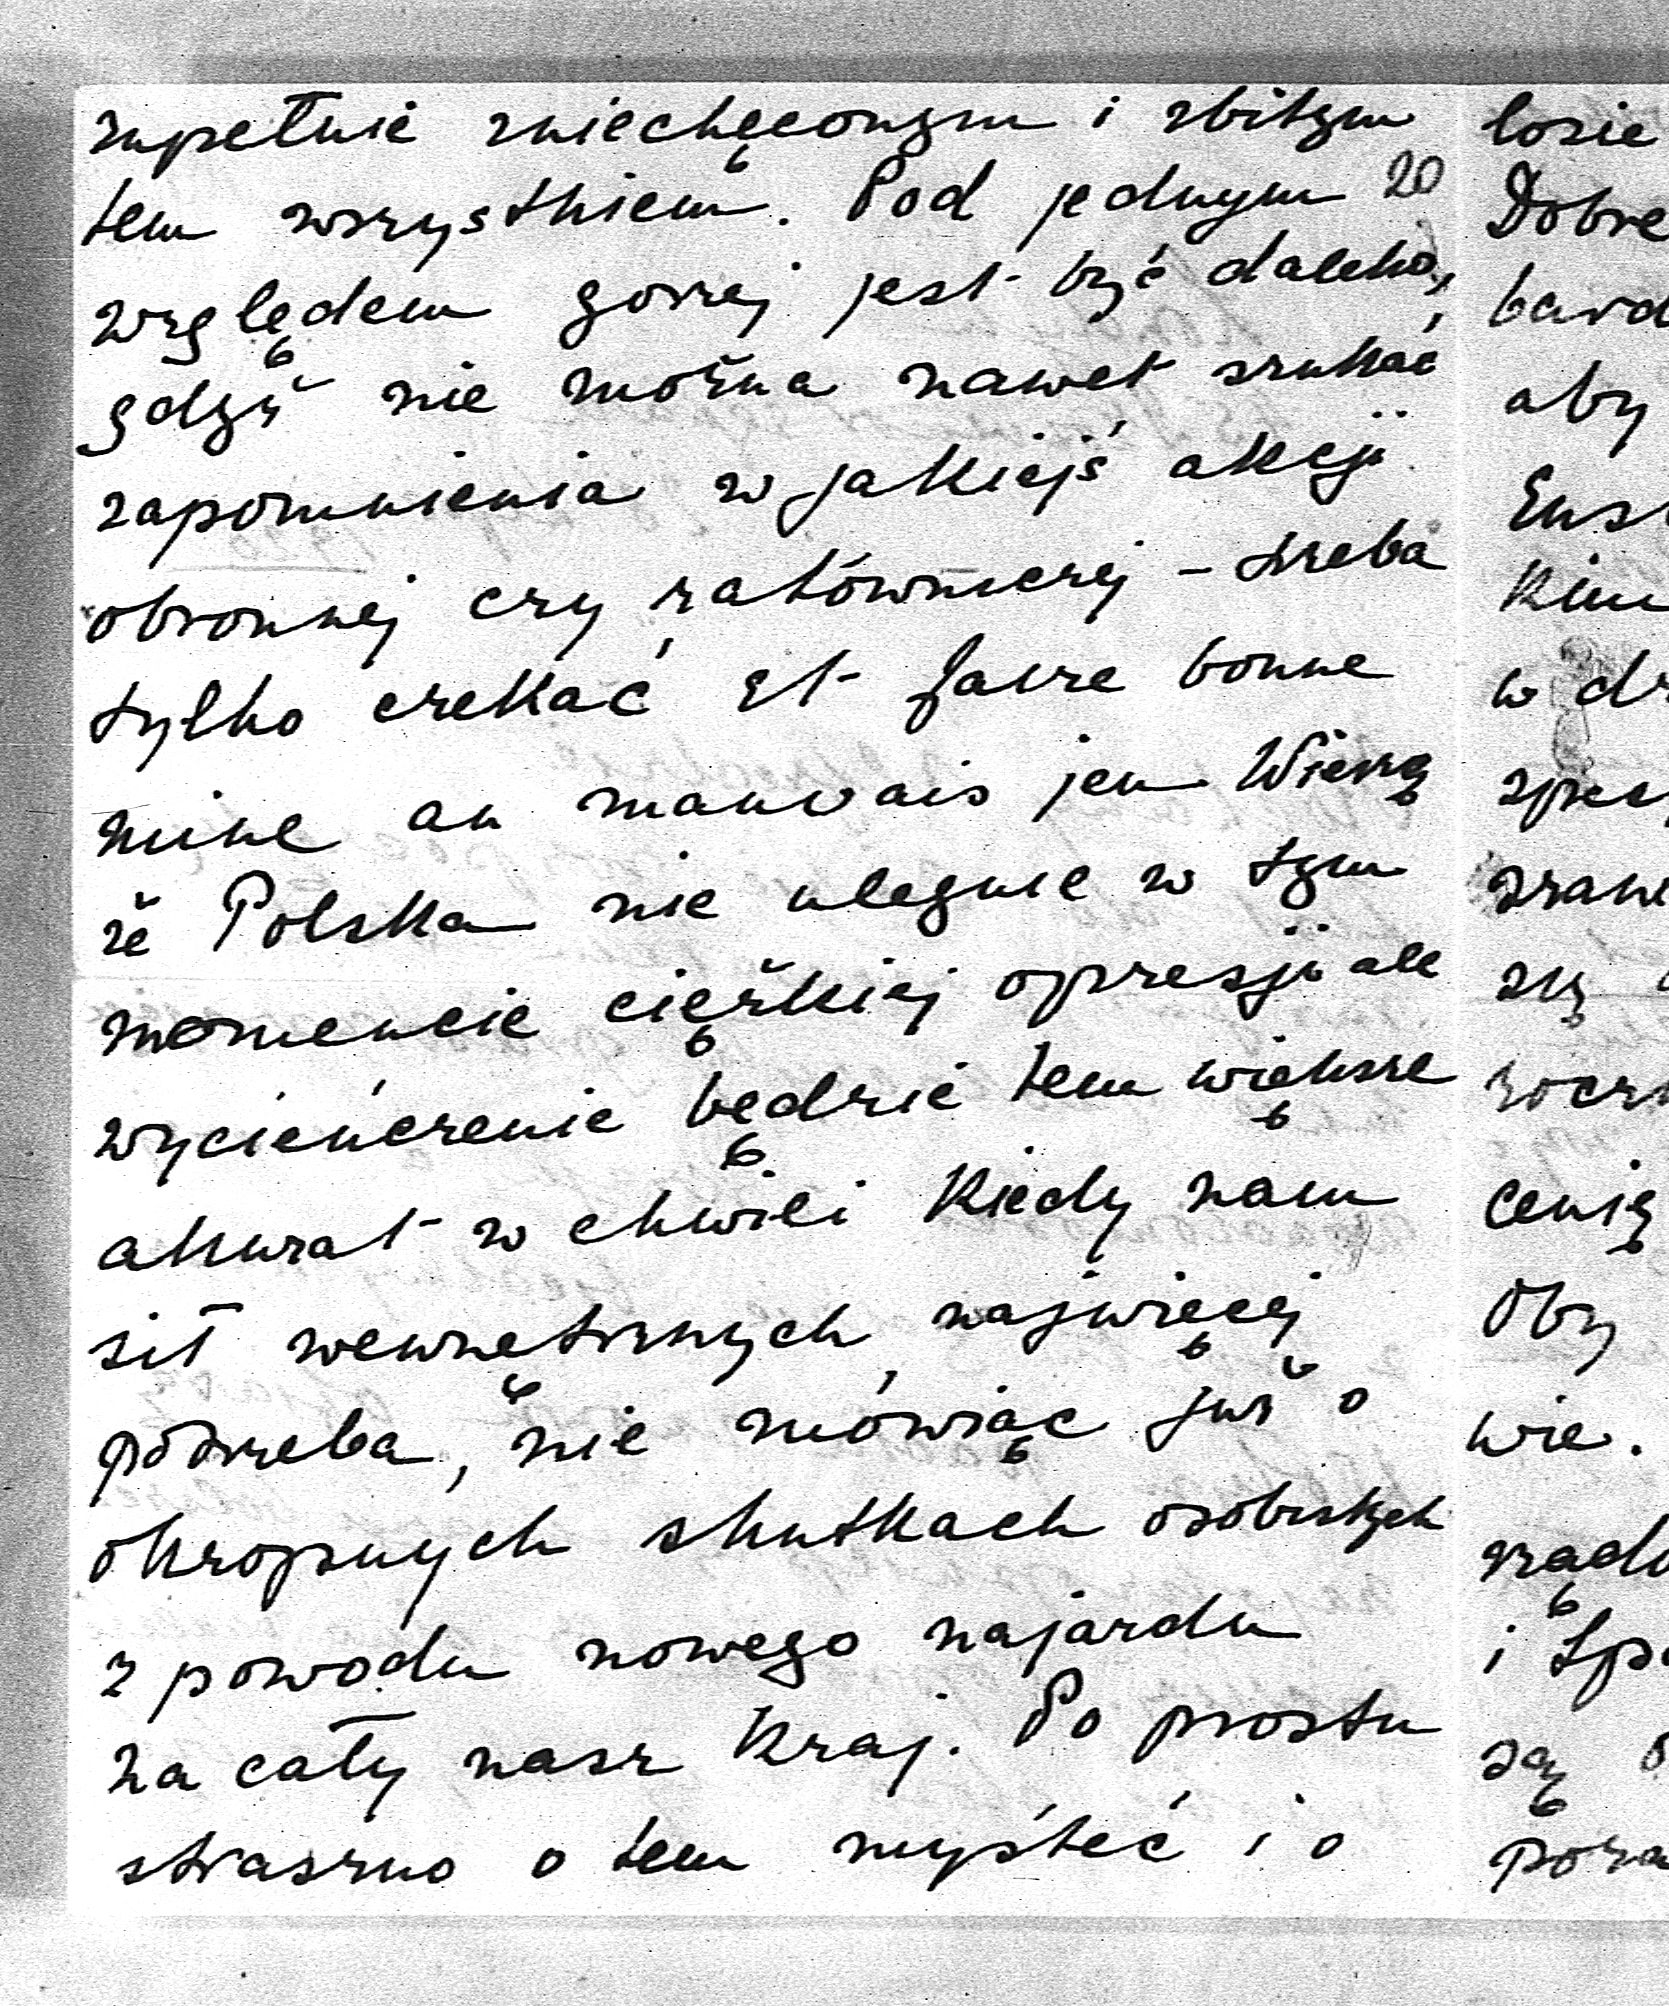 zupełnie zniechęconym i zbitym
tem wszystkiem. Pod jednym 20
względem gorzej jest być daleko,
gdyż nie można nawet szukać
zapomnienia w jakiejś akcji
obronnej czy ratowniczej – trzeba
tylko czekać et faire bonne
mine au mauvais jeu Wierzę
że Polska nie ulegnie w tym
momencie ciężkiej opresji ale
wycieńczenie będzie tem większe
akurat w chwili kiedy nam
sił wewnętrznych najwięcej
potrzeba, nie mówiąc już o
okropnych skutkach osobistych
z powodu nowego najazdu
na cały nasz kraj. Po prostu
straszno o tem myśleć i o
losie
Dobre
bard
aby
Eust
Kim
w dr
spies
zrani
się
rocz
cenię
Oby
wie.
rządu
i Spa
są
poza